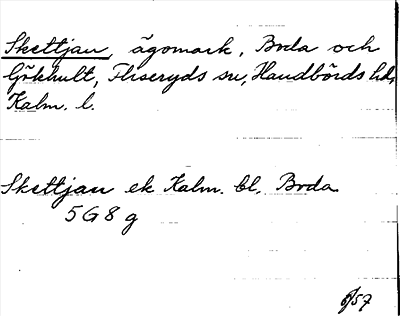 Skettjau, ägomark, Boda och
Gökhult, Fliseryds sn, Handbörds hd,
Kalm. l.
Skettjau ek Kalm. bl, Boda
5G8g
6/57